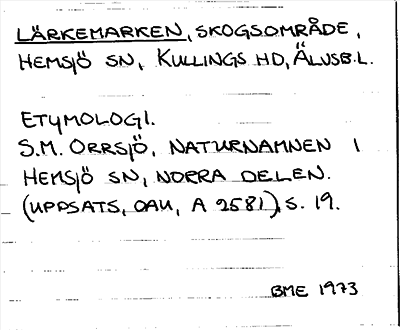 LÄRKEMARKEN, SKOGSOMRÅDE,
HEMSJÖ SN, KULLINGS HD, ÄLVSB.L.
ETYMOLOGI.
S.M. ORRSJÖ, NATURNAMNEN I
HEMSJÖ SN, NORRA DELEN.
(UPPSATS, OAU, A 2581), S. 19.
BME 1973